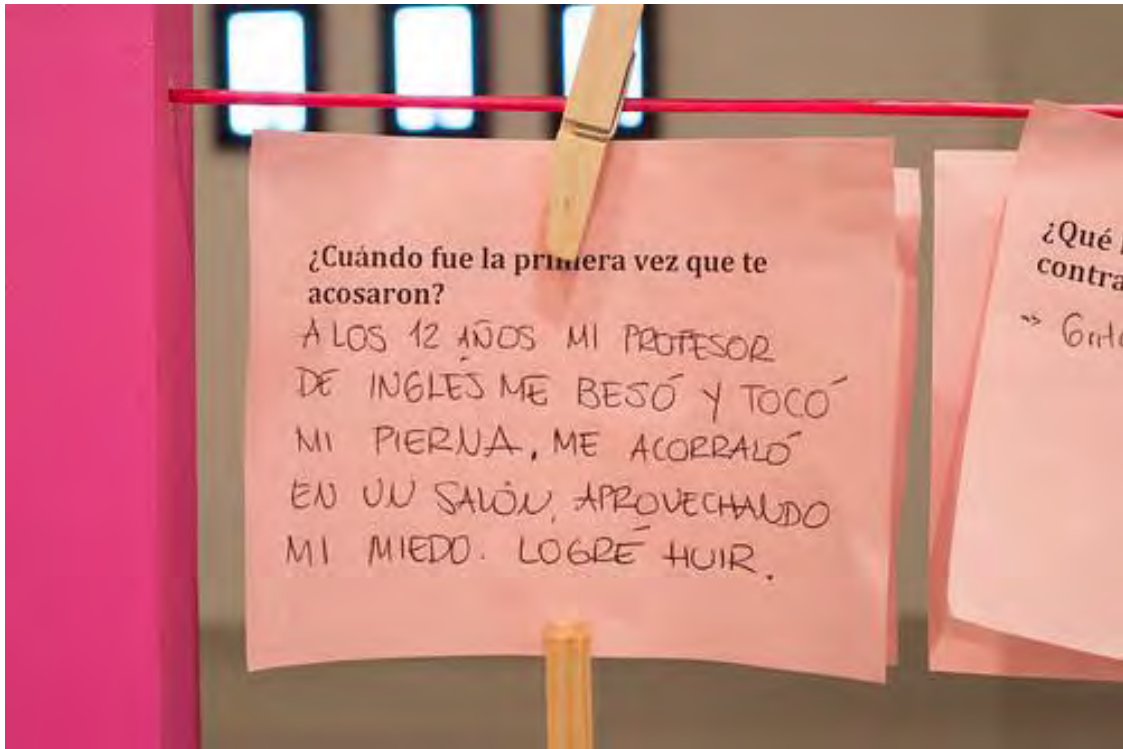 ¿Cuándo fue la primera vez que te
acosaron?
A LOS 12 AÑOS MI PROFESOR
DE INGLÉS ME BESÓ Y TOCÓ
MI PIERNA. ME ACORRALÓ
EN UN SALÓN, APROVECHANDO
MI MIEDO. LOGRÉ HUIR.
¿Qué
contra